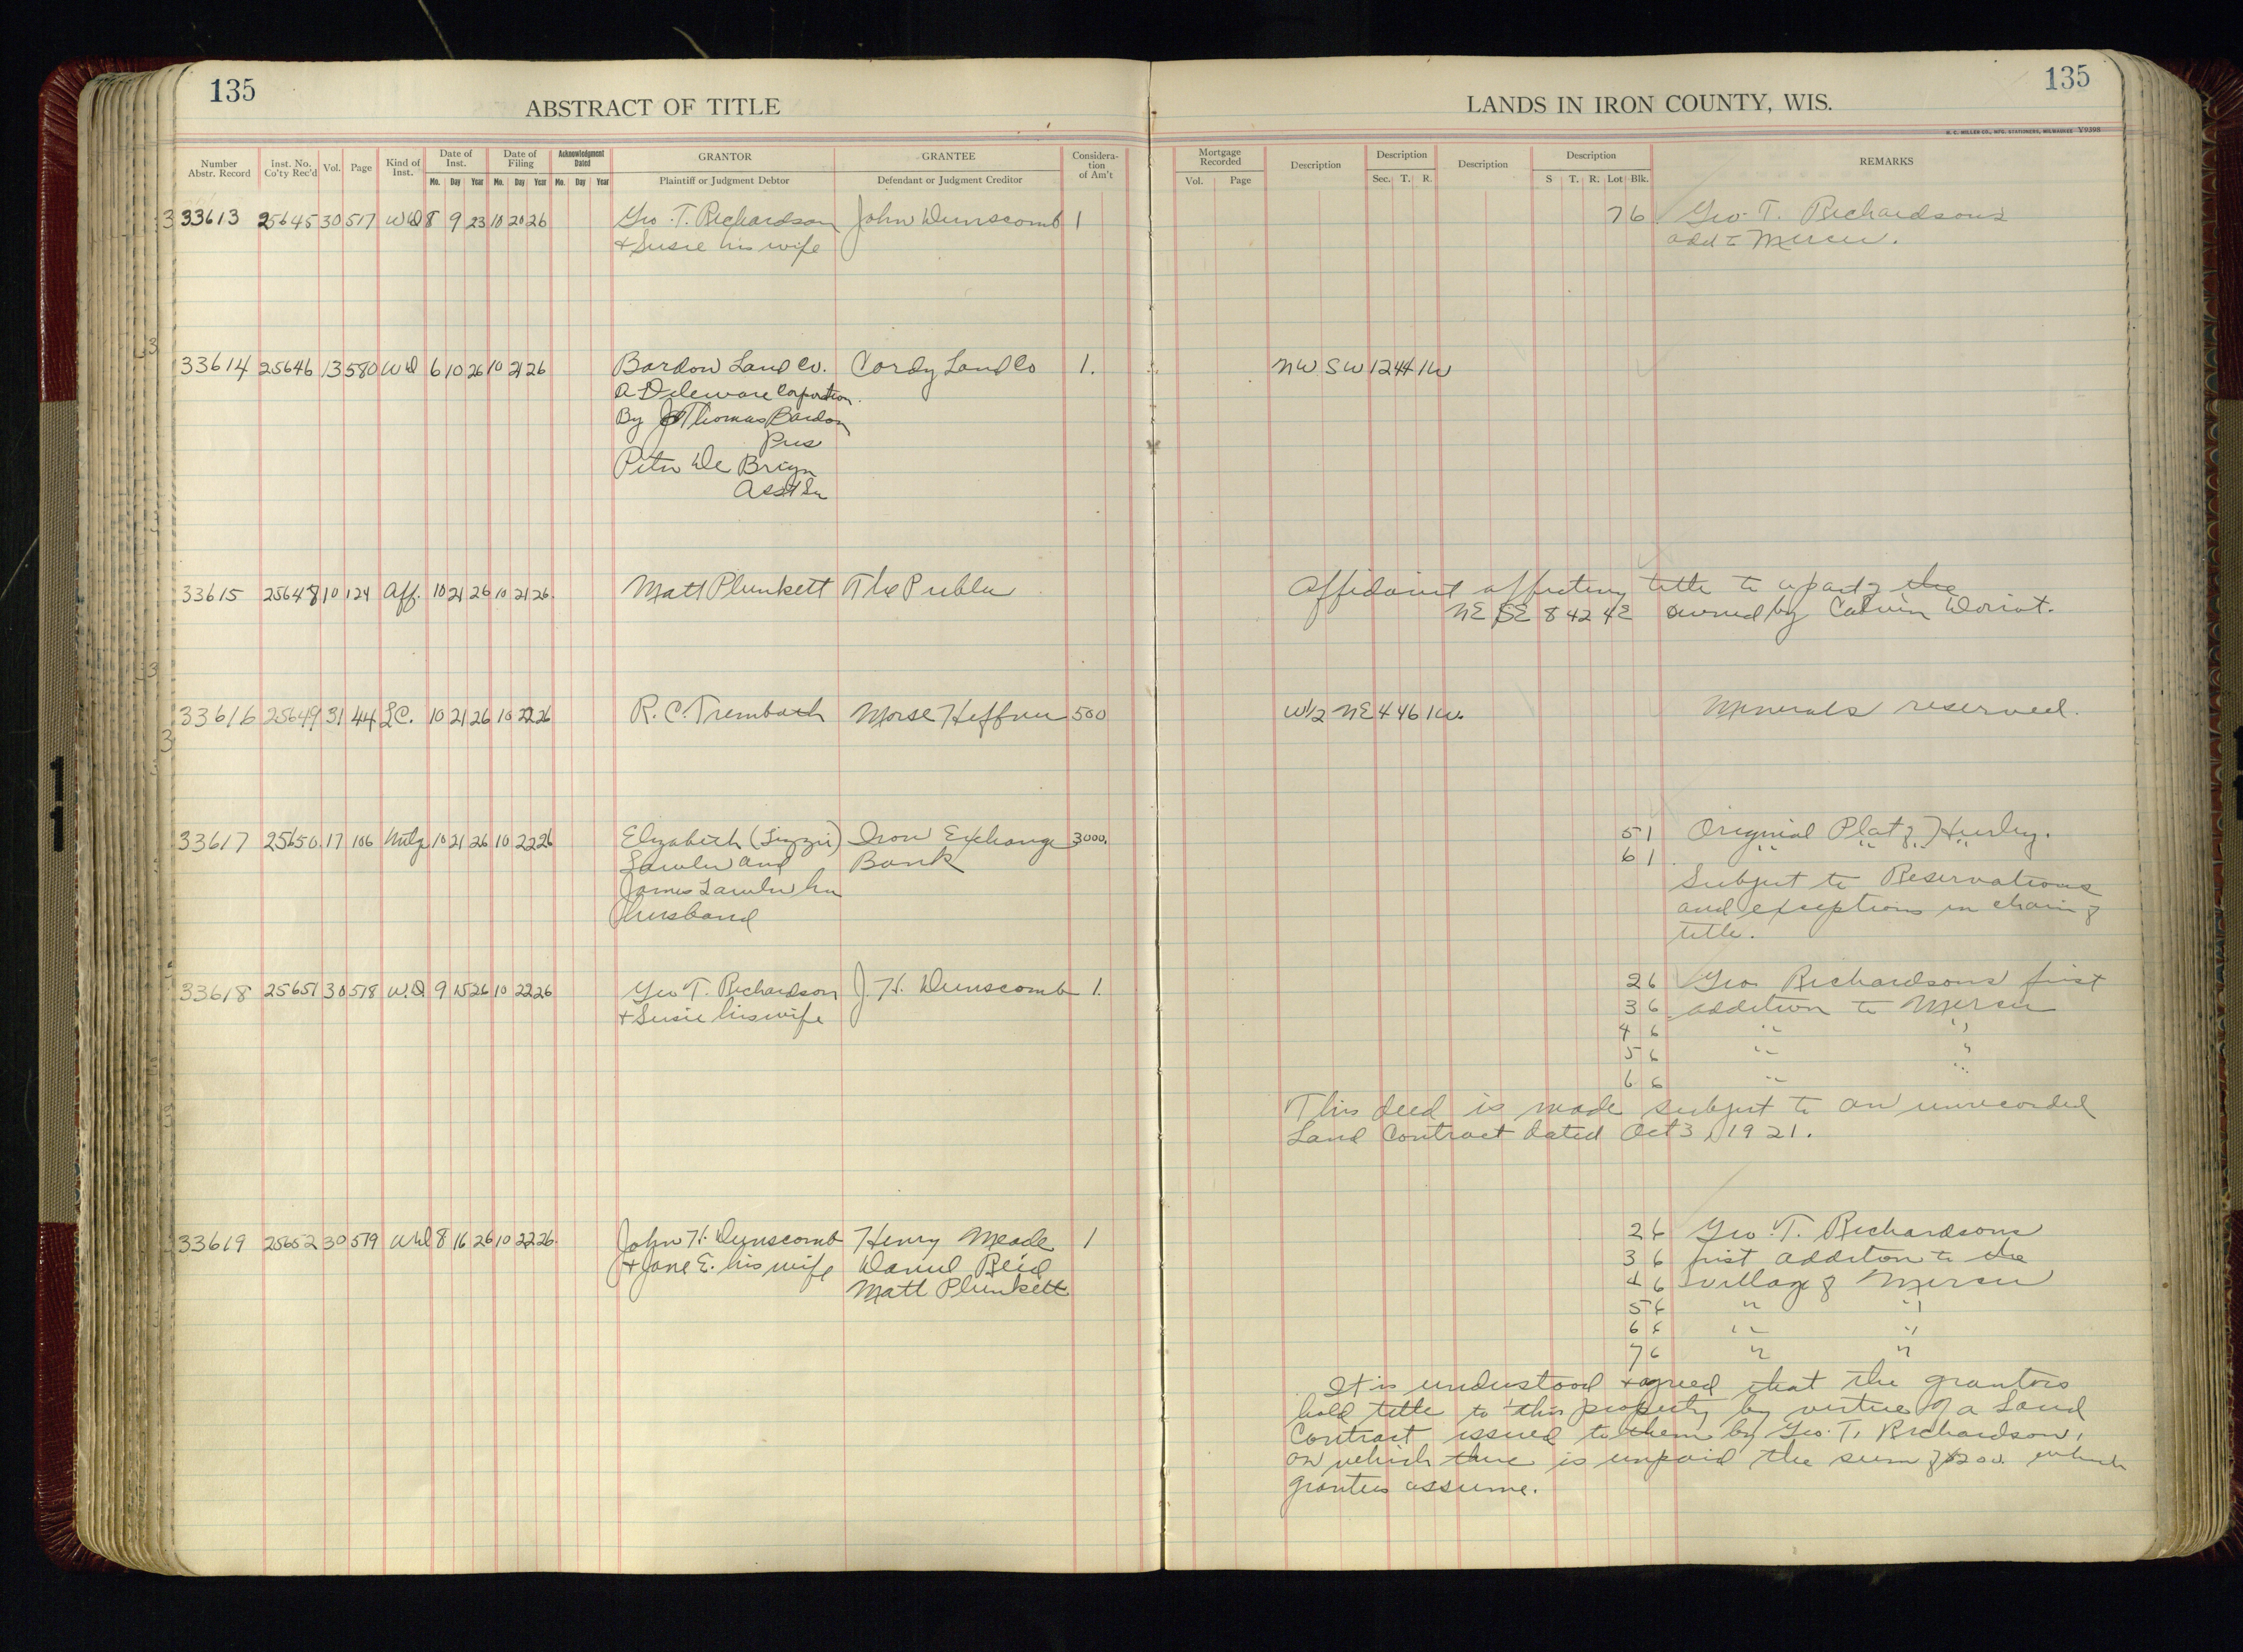 135
ABSTRACT OF TITLE
LANDS IN IRON COUNTY, WIS.
135
H. C. MILLER CO., MFG. STATIONERS, MILWAUKEE Y9398
Number Abstr. Record
Inst. No. Co'ty Rec'd
Vol.
Page
Kind of Inst.
Date of Inst.
Mo. Day Year
Date of Filing
Mo. Day Year
Acknowledgment Dated
Mo. Day Year
GRANTOR
Plaintiff or Judgment Debtor
GRANTEE
Defendant or Judgment Creditor
Considera-tion of Am't
Mortgage Recorded
Vol. Page
Description
Description
Sec. T. R.
Description
Description
S T. R. Lot Blk.
REMARKS
33613 25645 30 517 WD 8 9 23 10 20 26 Geo. T. Richardson John Dunscomb 1 7 6 Geo. T. Richardsons
+ Susie his wife add to Mercer.
33614 25646 13 580 WD 6 10 26 10 21 26 Bardon Land Co. Cordy Land Co 1. NW SW 12 44 1W
A Deleware Corporation.
By Thomas Bardon
Pres
Peter De Brign
Asst Sec
33615 25648 10 124 Aff. 10 21 26 10 21 26. Matt Plunkett The Public Affidavit affecting title to a part of the
NE SE 8 42 4E owned by Calvin Doriot.
33616 25649 31 44 LC. 10 21 26 10 22 26 R. C. Trembath Morse Heffner 500 W1/2 NE 4 46 1W. Minerals reserved.
33617 25650. 17 106 Mtg 10 21 26 10 22 26 Elizabeth (Lizzie) Iron Exchange 3000. 5 1 Original Plat of Hurley.
Lawler and Bank 6 1 " " " "
James Lawler her Subject to Reservations
husband and exceptions in chain of
title.
33618 25651 30 518 W.D. 9 15 26 10 22 26 Geo T. Richardson J. H. Dunscomb 1. 2 6 Geo Richardsons first
+ Susie his wife 3 6 addition to Mercer
4 6 " "
5 6 " "
6 6 " "
This deed is made subject to an unrecorded
Land Contract dated Oct 3, 1921.
33619 25652 30 519 WD 8 16 26 10 22 26. John H. Dunscomb Henry Meade 1 2 6 Geo. T. Richardsons
+ Jane E. his wife Daniel Reid 3 6 first addition to the
Matt Plunkett 4 6 village of Mercer
5 6 " "
6 6 " "
7 6 " "
It is understood + agreed that the grantors
hold title to this property by virtue of a Land
Contract issued to them by Geo. T. Richardson,
on which there is unpaid the sum of $200. which
grantees assume.